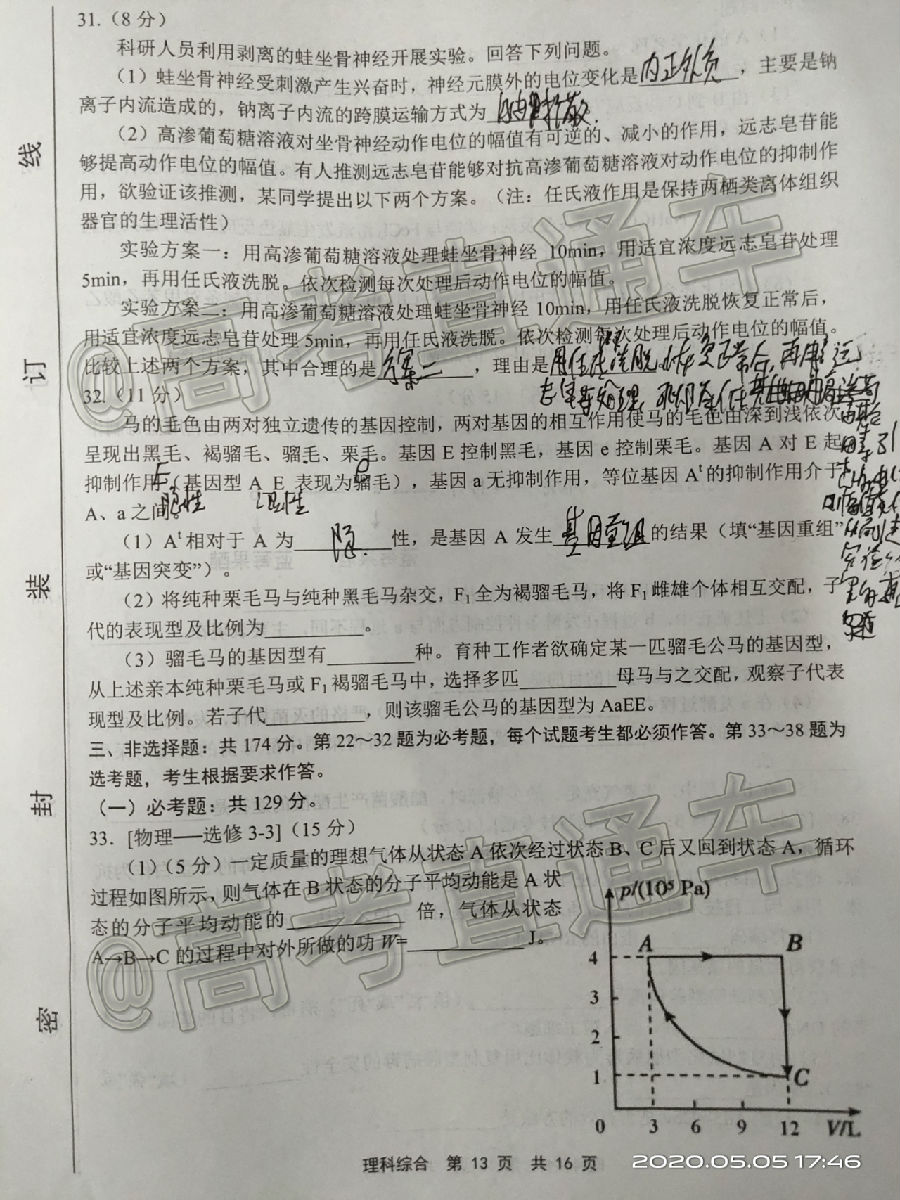 31.（8 分）
科研人员利用剥离的蛙坐骨神经开展实验。回答下列问题。
（1）蛙坐骨神经受刺激产生兴奋时，神经元膜外的电位变化是 内正外负 ，主要是钠
离子内流造成的，钠离子内流的跨膜运输方式为
（2）高渗葡萄糖溶液对坐骨神经动作电位的幅值有可逆的、减小的作用，远志皂苷能
够提高动作电位的幅值。有人推测远志皂苷能够对抗高渗葡萄糖溶液对动作电位的抑制作
用，欲验证该推测，某同学提出以下两个方案。（注：任氏液作用是保持两栖类离体组织
器官的生理活性）
实验方案一：用高渗葡萄糖溶液处理蛙坐骨神经 10min，用适宜浓度远志皂苷处理
5min，再用任氏液洗脱。依次检测每次处理后动作电位的幅值。
实验方案二：用高渗葡萄糖溶液处理蛙坐骨神经 10min，用任氏液洗脱恢复正常后，
用适宜浓度远志皂苷处理 5min，再用任氏液洗脱。依次检测每次处理后动作电位的幅值。
比较上述两个方案，其中合理的是 方案二 ，理由是 用任氏液洗脱
32.（11 分）
马的毛色由两对独立遗传的基因控制，两对基因的相互作用使马的毛色由深到浅依次
呈现出黑毛、褐骝毛、骝毛、栗毛。基因 E 控制黑毛，基因 e 控制栗毛。基因 A 对 E 起
抑制作用（基因型 A_E_表现为骝毛），基因 a 无抑制作用，等位基因 Aᵗ的抑制作用介于
A、a 之间。
（1）Aᵗ相对于 A 为 隐 性，是基因 A 发生 基因重组 的结果（填“基因重组”
或“基因突变”）。
（2）将纯种栗毛马与纯种黑毛马杂交，F₁全为褐骝毛马，将 F₁雌雄个体相互交配，子
代的表现型及比例为________。
（3）骝毛马的基因型有________种。育种工作者欲确定某一匹骝毛公马的基因型，
从上述亲本纯种栗毛马或 F₁褐骝毛马中，选择多匹________母马与之交配，观察子代表
现型及比例。若子代________，则该骝毛公马的基因型为 AaEE。
三、非选择题：共 174 分。第 22～32 题为必考题，每个试题考生都必须作答。第 33～38 题为
选考题，考生根据要求作答。
（一）必考题：共 129 分。
33. [物理——选修 3-3]（15 分）
（1）（5 分）一定质量的理想气体从状态 A 依次经过状态 B、C 后又回到状态 A，循环
过程如图所示，则气体在 B 状态的分子平均动能是 A 状
态的分子平均动能的________倍，气体从状态
A→B→C 的过程中对外所做的功 W=________J。
p/(10⁵ Pa)
A B
4
3
2
1 C
0 3 6 9 12 V/L
线
订
装
封
密
@高考直通车
@高考直通车
理科综合 第 13 页 共 16 页
2020.05.05 17:46